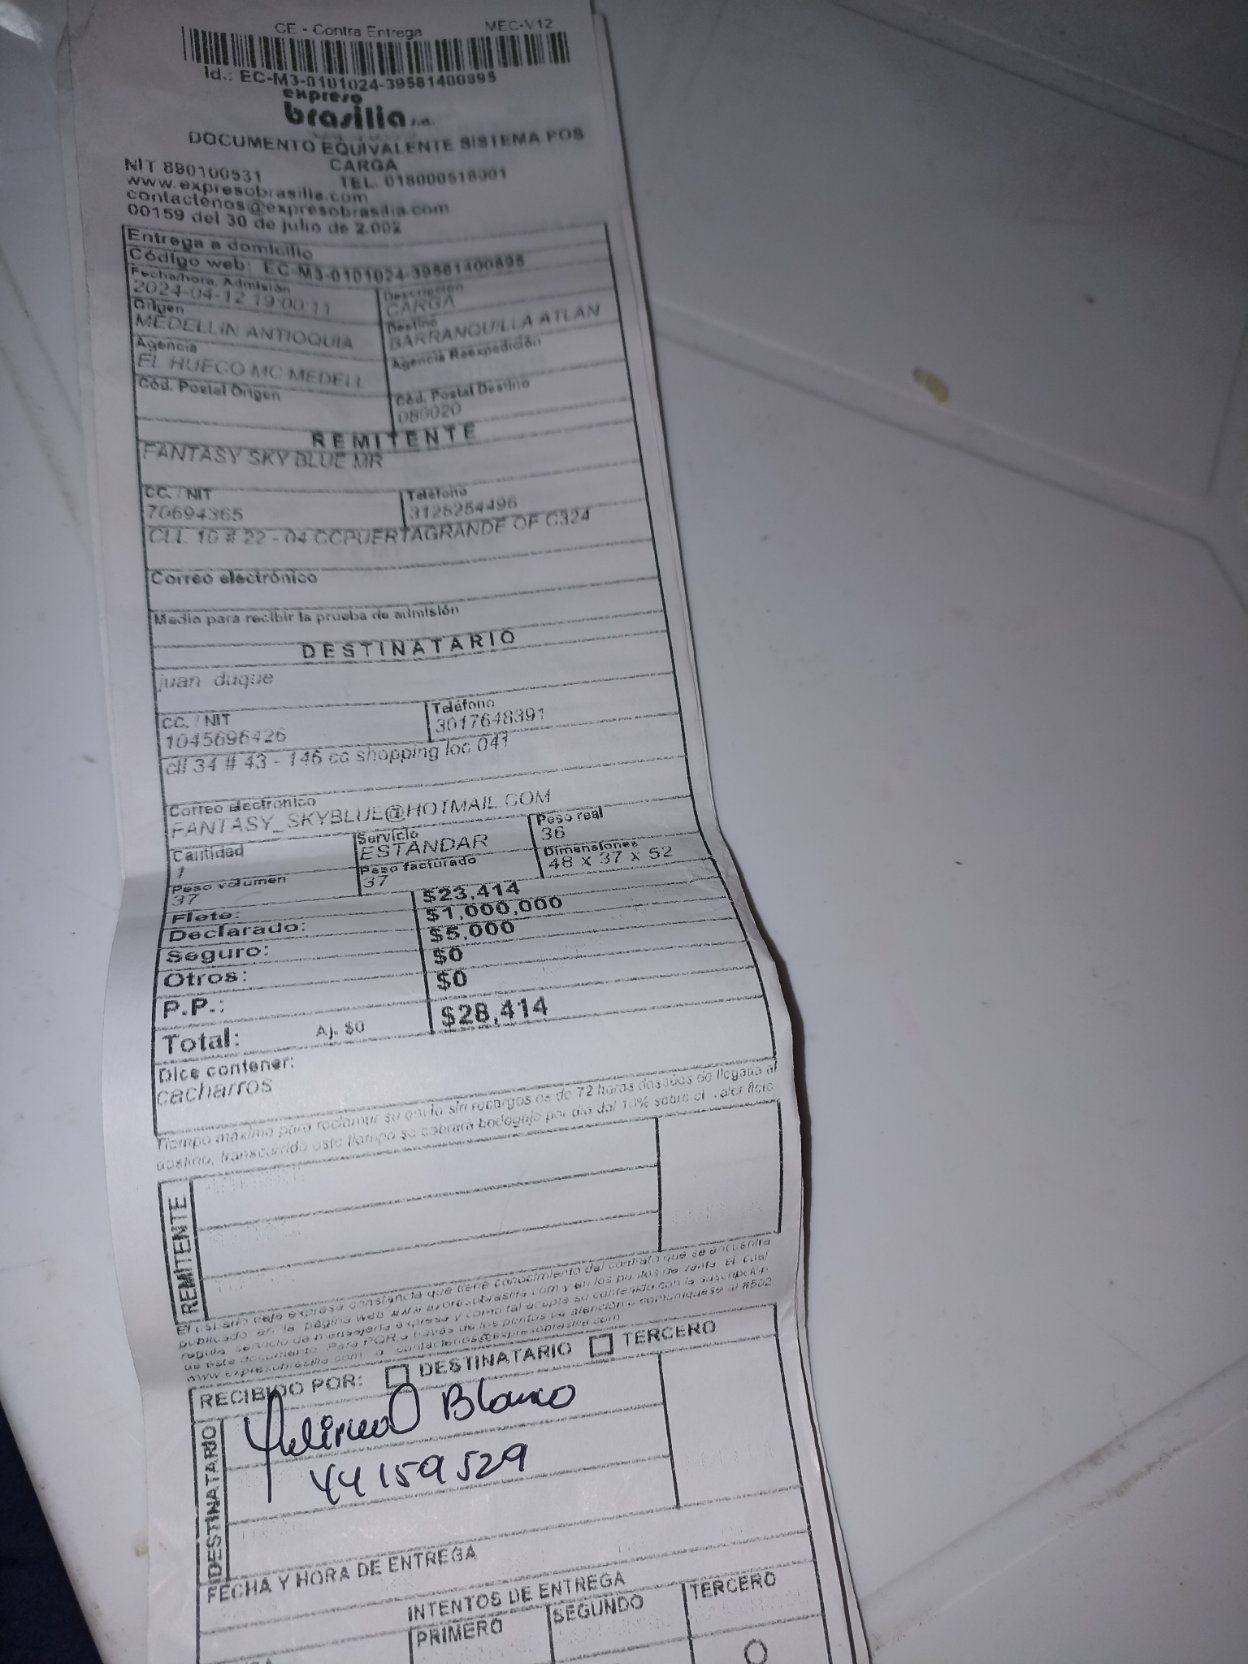 CE - Contra Entrega MEC-V12
Id.: EC-M3-0101024-39581400895
expreso
brasilia s.a.
DOCUMENTO EQUIVALENTE SISTEMA POS
CARGA
NIT 890100531 TEL. 018000518001
www.expresobrasilia.com
contactenos@expresobrasilia.com
00159 del 30 de julio de 2.002
Entrega a domicilio
Código web: EC-M3-0101024-39581400895
Fecha/hora. Admisión Descripción
2024-04-12 19:00:11 CARGA
Origen Destino
MEDELLIN ANTIOQUIA BARRANQUILLA ATLAN
Agencia Agencia Reexpedición
EL HUECO MC MEDELL
Cód. Postal Origen Cód. Postal Destino
080020
REMITENTE
FANTASY SKY BLUE MR
CC. / NIT Teléfono
70694365 3128254496
CLL 10 # 22 - 04 CCPUERTAGRANDE OF C324
Correo electrónico
Medio para recibir la prueba de admisión
DESTINATARIO
juan duque
CC. / NIT Teléfono
1045696426 3017648391
cll 34 # 43 - 146 cc shopping loc 041
Correo electrónico
FANTASY_SKYBLUE@HOTMAIL.COM
Cantidad Servicio Peso real
1 ESTANDAR 36
Peso volumen Peso facturado Dimensiones
37 37 48 x 37 x 52
Flete: $23,414
Declarado: $1,000,000
Seguro: $5,000
Otros: $0
P.P.: $0
Total: Aj. $0 $28,414
Dice contener:
cacharros
Tiempo máximo para reclamar su envío sin recargos es de 72 horas después de llegada al
destino, transcurrido este tiempo se cobrará bodegaje por día del 10% sobre el valor flete
REMITENTE
El usuario deja expresa constancia que tiene conocimiento del contrato que se encuentra
publicado en la página web www.expresobrasilia.com y en los puntos de venta. El cual
regula servicio de mensajería expresa y como tal acepta su contenido con la suscripción
de este documento. Para PQR a través de los puntos de atención o comuníquese al #502
www.expresobrasilia.com o contactenos@expresobrasilia.com
RECIBIDO POR: DESTINATARIO TERCERO
DESTINATARIO
Blanco
44159529
FECHA Y HORA DE ENTREGA
INTENTOS DE ENTREGA
PRIMERO SEGUNDO TERCERO